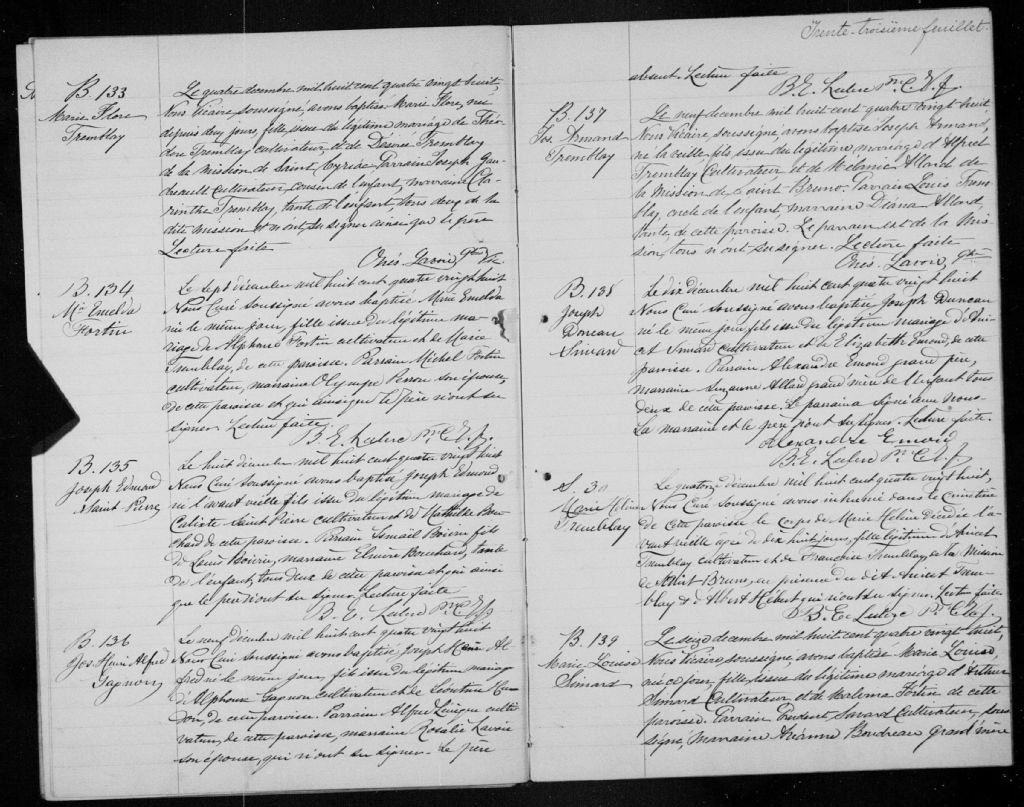 B. 133
Marie Flore
Tremblay
Le quatre decembre mil huit cent quatre vingt huit,
Nous Vicaire soussigné, avons baptisé Marie Flore, née
depuis deux jours, fille, issue du légitime mariage de Théo-
dore Tremblay cultivateur et de Désirée Tremblay
de la Mission de Saint Cyriac. Parrain Joseph Gau-
dreault Cultivateur, Cousin de l'enfant, marraine Cla-
rinthe Tremblay, tante de l'enfant, tous deux de la
dite mission et n'ont su signer ainsi que le père
Lecture faite
Onés. Lavoie, Ptre Vic.
B. 134
Mie Emelda
Fortin
Le sept décembre mil huit cent quatre vingt huit
Nous Curé soussigné avons baptisé Marie Emelda
née le même jour, fille issue du légitime ma-
riage de Alphonse Fortin cultivateur et de Marie
Tremblay, de cette paroisse. Parrain Michel Fortin
cultivateur, marraine Olympe Perron son épouse,
de cette paroisse et qui ainsi que le père n'ont su
signer. Lecture faite.
B. E. Leclerc Ptre C. E. J.
B. 135
Joseph Edmond
Saint-Pierre
Le huit décembre mil huit cent quatre vingt huit
Nous Curé soussigné avons baptisé Joseph Edmond
né l'avant veille fils issu du légitime mariage de
Calixte Saint Pierre cultivateur et de Mathilde Bou-
chard de cette paroisse. Parrain Ismaïl Boivin fils
de Louis Boivin, marraine Elmire Bouchard, tante
de l'enfant, tous deux de cette paroisse et qui ainsi
que le père n'ont su signer. Lecture faite
B. E. Leclerc Ptre C. E. J.
B. 136
Jos. Henri Alfred
Gagnon
Le neuf décembre mil huit cent quatre vingt huit
Nous Curé soussigné avons baptisé Joseph Henri Al-
fred né le même jour, fils issu du légitime mariage
d'Alphonse Gagnon cultivateur et de Léontine
de cette paroisse. Parrain Alfred Lévesque culti-
vateur, de cette paroisse, marraine Rosalie Lavoie
son épouse, qui n'ont su signer. Le père
Trente-troisième feuillet.
absent. Lecture faite
B. E. Leclerc Ptre C. E. J.
B. 137
Jos. Armand
Tremblay
Le neuf decembre mil huit cent quatre vingt huit
Nous Vicaire, soussigné, avons baptisé Joseph Armand,
né la veille fils, issu du légitime mariage d'Alfred
Tremblay Cultivateur et de Mélanie Allard de
la mission de Saint Bruno. Parrain Louis Trem-
blay, oncle de l'enfant, marraine Diana Allard,
tante, de cette paroisse. Le parrain est de la Mis-
sion, tous n'ont su signer. Lecture faite
Onés. Lavoie, Ptre
B. 138
Joseph
Duncan
Simard
Le dix décembre mil huit cent quatre vingt huit
Nous Curé soussigné avons baptisé Joseph Duncan
né le même jour fils issu du légitime mariage d'Ani-
cet Simard cultivateur et de Elizabeth Emond, de cette
paroisse. Parrain Alexandre Emond grand père,
marraine Suzanne Allard grand'mère de l'enfant tous
deux de cette paroisse. Le parrain a signé avec nous.
La marraine et le père n'ont su signer. Lecture faite.
Alexandre Emond
B. E. Leclerc Ptre C. E. J.
S. 30
Marie Hélène
Tremblay
Le quatorze décembre mil huit cent quatre vingt huit,
Nous Curé soussigné avons inhumé dans le cimetière
de cette paroisse le corps de Marie Hélène décédée l'a-
vant veille agée de dix huit jours, fille légitime d'Anicet
Tremblay cultivateur et de Françoise Tremblay, de la Mission
de Saint Bruno, en présence du dit Anicet Trem-
blay et d'Albert Hébert qui n'ont su signer. Lecture faite.
B. E. Leclerc Ptre C. E. J.
B. 139
Marie-Louise
Simard
Le seize decembre mil huit cent quatre vingt huit,
Nous Vicaire, soussigné, avons baptisé Marie Louise,
née ce jour, fille, issue du légitime mariage d'Arthur
Simard Cultivateur et de Malvina Fortin de cette
paroisse. Parrain Prudent Savard Cultivateur, sous-
signé, Marraine Arianne Boudreau grand'mère